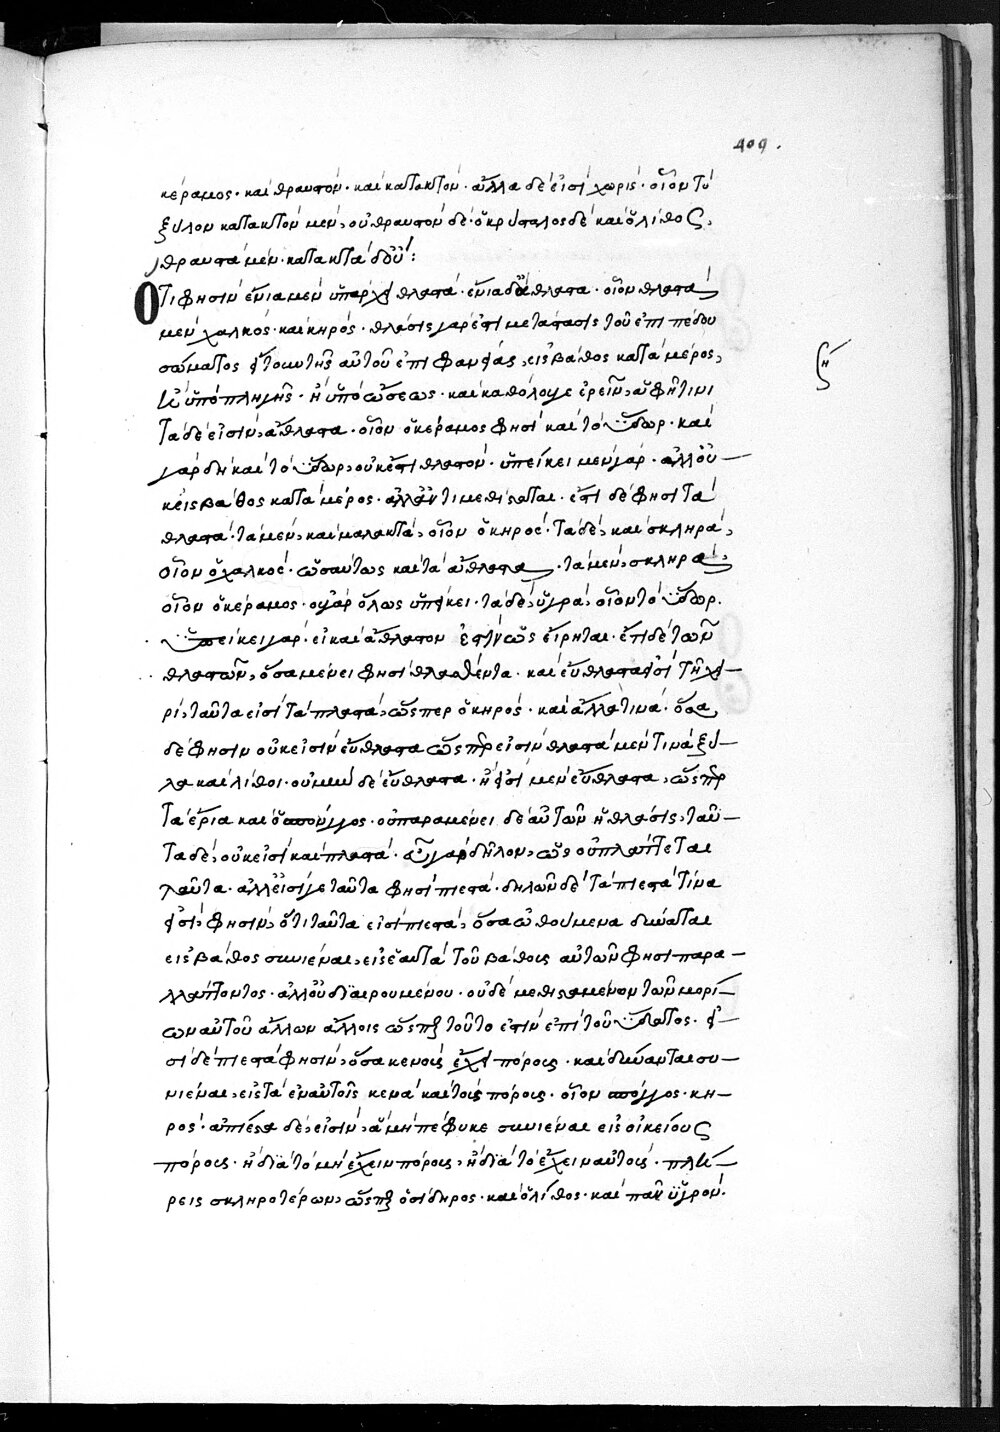 409.
κέραμος· καὶ θραυστόν· καὶ κατακτόν· ἄλλα δέ εἰσὶ χωρίς· οἷον τὸ
ξύλον κατακτὸν μέν, οὐ θραυστὸν δέ· ὁ κρύσταλος δὲ καὶ ὁ λίθος,
θραυστὰ μέν· κατακτὰ δ' οὔ:
Ὅτι φησὶν ἔνια μὲν ὑπάρχει θλαστά· ἔνια δὲ ἄθλαστα· οἷον θλαστὰ
μὲν χαλκός· καὶ κηρός· θλάσις γάρ ἐστι μετάστασις τοῦ ἐπιπέδου
σώματος ἤτοι τῆς αὐτοῦ ἐπιφανείας, εἰς βάθος κατὰ μέρος,
ἢ ὑπὸ πληγῆς· ἢ ὑπὸ ὤσεως· καὶ καθόλου γε ἐρεῖν, ἀφῇ τινι
τὰ δέ εἰσιν, ἄθλαστα· οἷον ὁ κέραμος φησὶ καὶ τὸ ὕδωρ· καὶ
γὰρ δὴ καὶ τὸ ὕδωρ, οὐκ ἔστι θλαστόν· ὑπείκει μὲν γάρ· ἀλλ' οὐ
κ εἰς βάθος κατὰ μέρος· ἀλλ' ἀντιμεθίσταται· ἔτι δέ φησι τὰ
θλαστά· τὰ μέν, καὶ μαλακτά, οἷον ὁ κηρός· τὰ δέ, καὶ σκληρά,
οἷον ὁ χαλκός· ὡσαύτως καὶ τὰ ἄθλαστα, τὰ μέν, σκληρά,
οἷον ὁ κέραμος· οὐ γὰρ ὅλως ὑπείκει· τὰ δέ, ὑγρά, οἷον τὸ ὕδωρ.
ὑπείκει γάρ· εἰ καὶ ἄθλαστον ἐστὶν ὡς εἴρηται· ἔτι δὲ τῶν
θλαστῶν, ὅσα μένει φησὶ θλασθέντα· καὶ εὔθλαστα εἰσὶ τῇ χει
ρί, ταῦτα εἰσὶ τὰ πλαστά, ὥσπερ ὁ κηρός· καὶ ἄλλα τινά· ὅσα,
δέ φησιν οὐκ εἰσὶν εὔθλαστα ὥσπερ εἰσὶν θλαστὰ μέν τινα ξύ
λα καὶ λίθοι· οὐ μὴν δὲ εὔθλαστα· ἢ εἰσὶ μὲν εὔθλαστα, ὥσπερ
τὰ ἔρια καὶ ὁ σπόγγος· οὐ παραμένει δὲ αὐτῶν ἡ θλάσις, ταῦ
τα δέ, οὐκ εἰσὶ καὶ πλαστά· εὖ γὰρ δῆλον, ὡς οὐ πλάττεται
ταῦτα· ἀλλ' εἰσί γε ταῦτα φησὶ πιεστά· δηλῶν δὲ τὰ πιεστὰ τίνα
εἰσί, φησίν, ὅτι ταῦτα εἰσὶ πιεστά, ὅσα ὠθούμενα δύναται
εἰς βάθος συνιέναι, εἰς ἑαυτὰ τοῦ βάθους αὐτῶν φησὶ παρα
λλάττοντος· ἀλλ' οὐ διαιρουμένου· οὐδὲ μεθισταμένων τῶν μορί
ων αὐτοῦ ἄλλων ἄλλοις ὥσπερ τοῦτο ἐστὶν ἐπὶ τοῦ ὕδατος· εἰ
σὶ δὲ πιεστὰ φησίν, ὅσα κενοὺς ἔχει πόρους· καὶ δύνανται συ
νιέναι, εἰς τὰ ἐν αὐτοῖς κενὰ καὶ τοὺς πόρους· οἷον σπόγγος· κη
ρός· ἀπίεστα δέ, εἰσίν, ἃ μὴ πέφυκε συνιέναι εἰς οἰκείους
πόρους· ἢ διὰ τὸ μὴ ἔχειν πόρους, ἢ διὰ τὸ ἔχειν αὐτοὺς· πλή
ρεις σκληροτέρων, ὥσπερ ὁ σίδηρος· καὶ ὁ λίθος· καὶ πᾶν ὑγρόν.